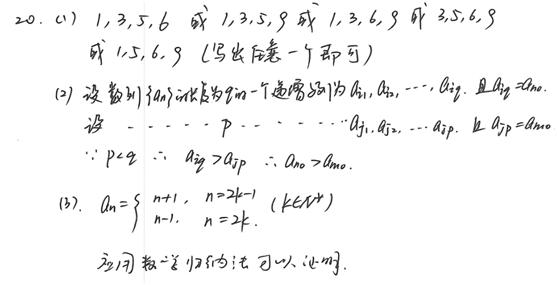 20. (1) 1,3,5,6 或 1,3,5,9 或 1,3,6,9 或 3,5,6,9
或 1,5,6,9 (写出任意一个即可)
(2) 设数列{an}中长度为q的一个递增子列为 ai1, ai2, ..., aiq. 且 aiq = an0.
设 - - - - - - p - - - - - - - aj1, aj2, ... ajp. 且 ajp = am0
∵ p<q ∴ aiq > ajp ∴ an0 > am0.
(3). an = { n+1, n=2k-1
n-1, n=2k. (k∈N*)
应用数学归纳法可以证明.